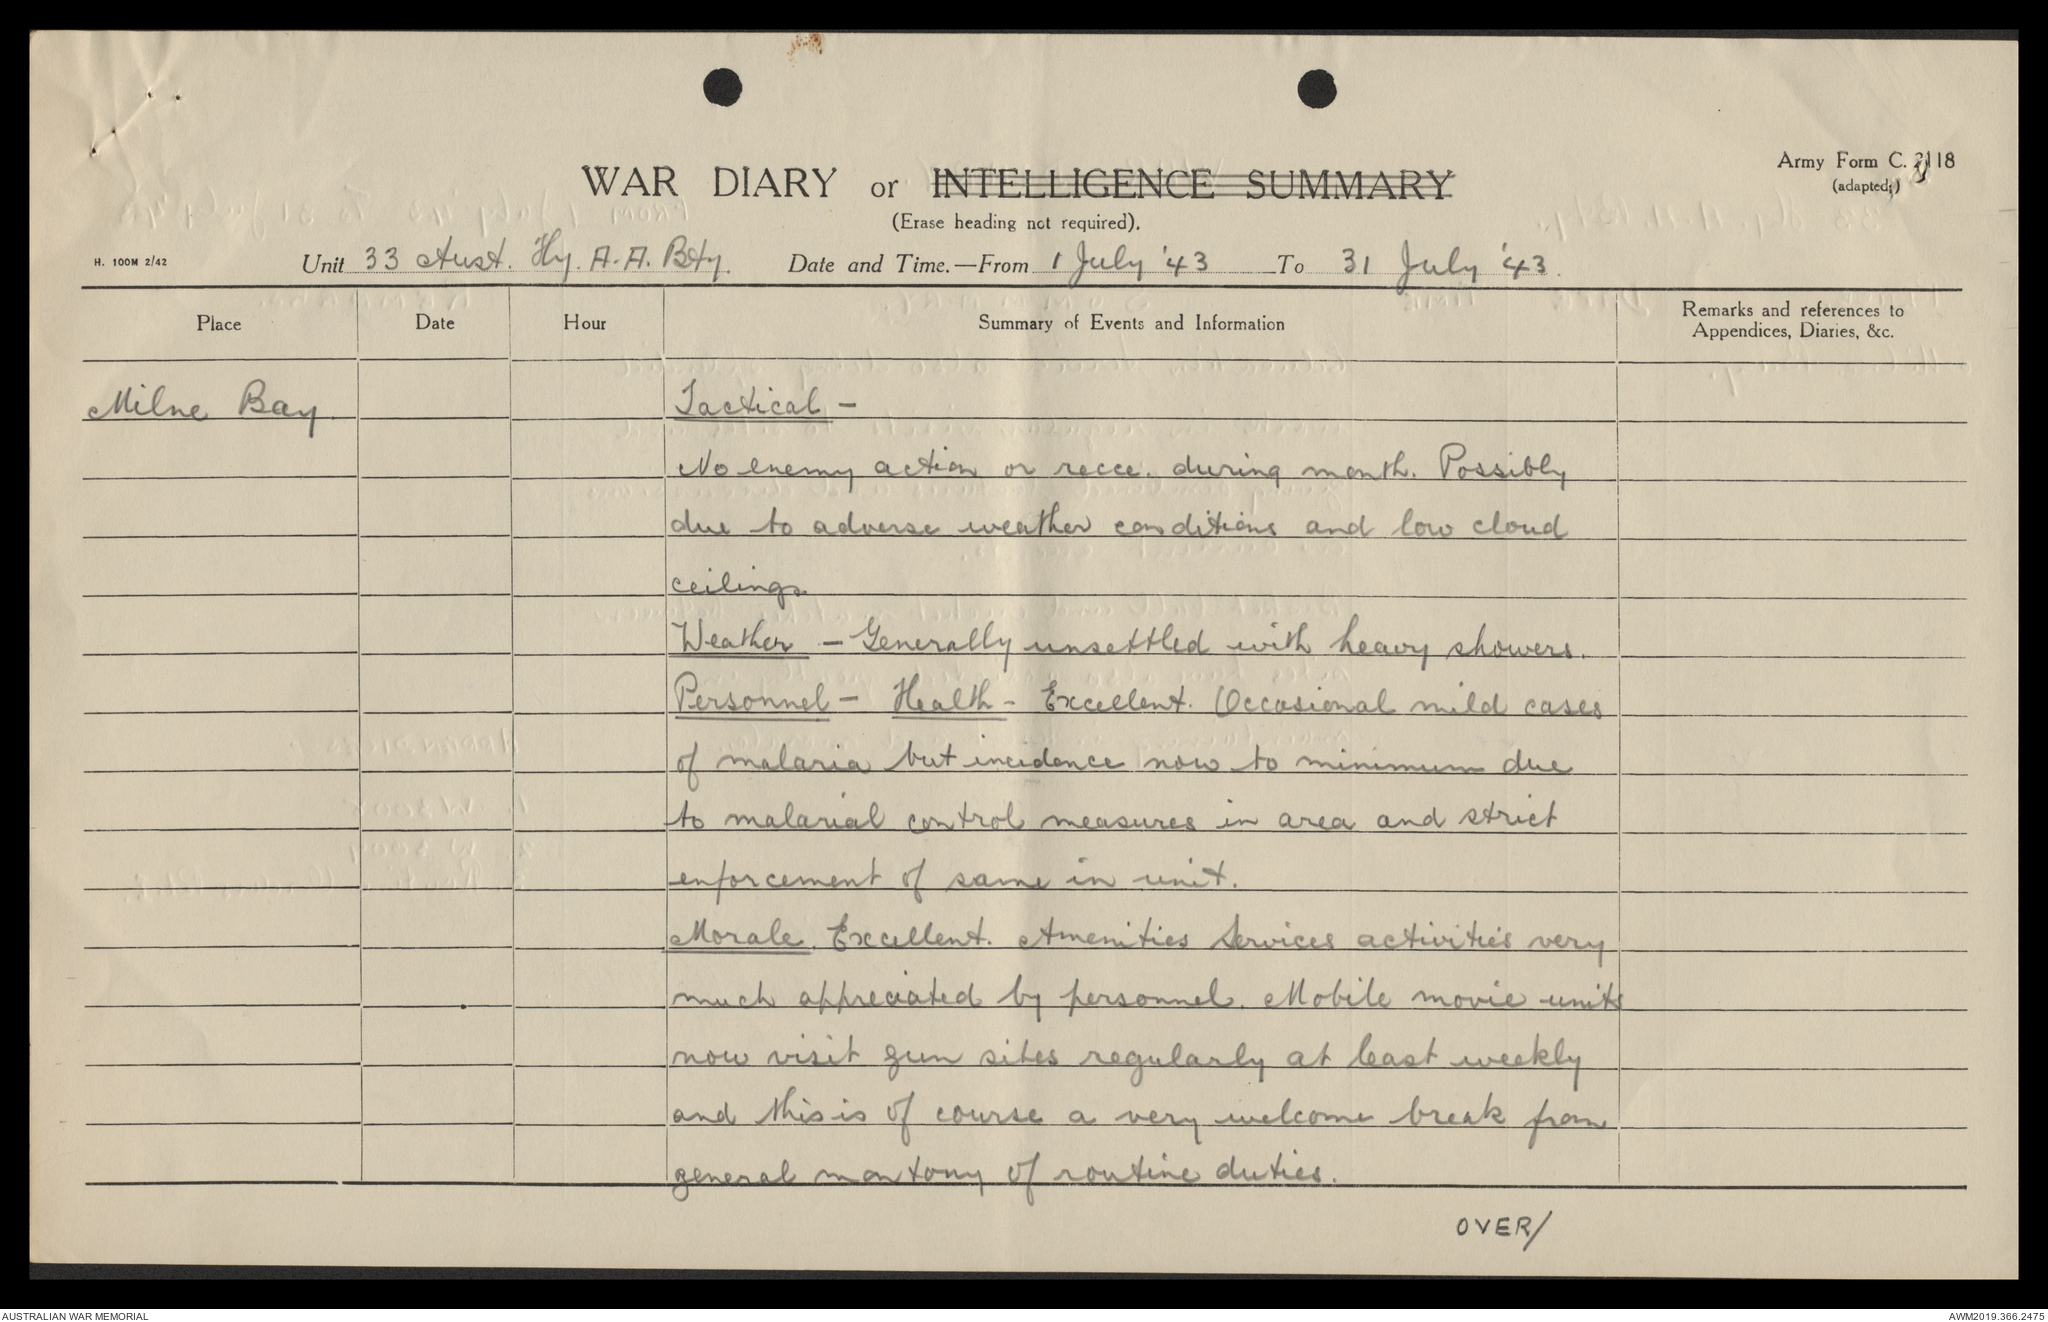 WAR DIARY or INTELLIGENCE SUMMARY
(Erase heading not required).
Army Form C. 2118
(adapted;)
H. 100M 2/42
Unit 33 Aust. Hy. A.A. Bty. Date and Time.—From 1 July '43 To 31 July '43.
Place Date Hour Summary of Events and Information Remarks and references to Appendices, Diaries, &c.
Milne Bay. Tactical -
No enemy action or recce. during month. Possibly
due to adverse weather conditions and low cloud
ceilings
Weather - Generally unsettled with heavy showers.
Personnel - Health - Excellent. Occasional mild cases
of malaria but incidence now to minimum due
to malarial control measures in area and strict
enforcement of same in unit.
Morale. Excellent. Amenities Services activities very
much appreciated by personnel. Mobile movie units
now visit gun sites regularly at least weekly
and this is of course a very welcome break from
general montony of routine duties.
OVER/
AUSTRALIAN WAR MEMORIAL
AWM2019.366.2475